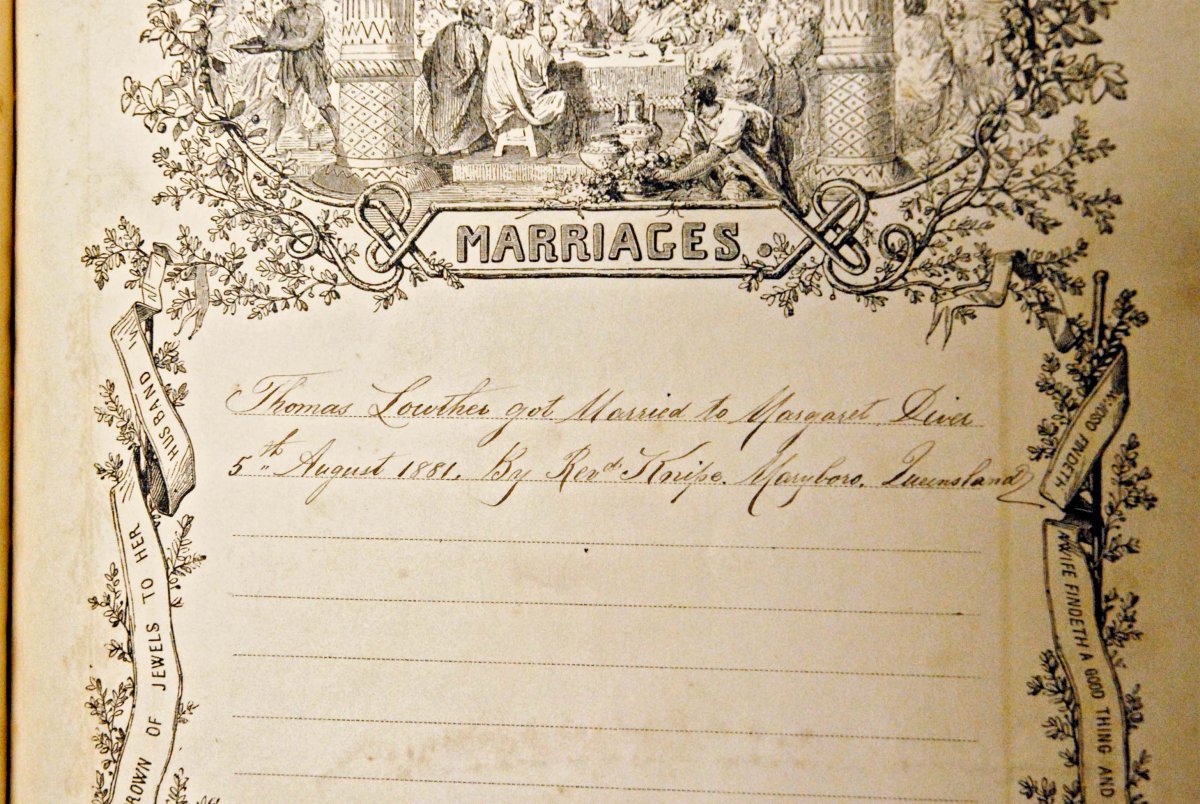 MARRIAGES.
Thomas Lowther got Married to Margaret Diver
5th August 1881. By Revd Knipe. Maryboro. Queensland
HUSBAND
ROWN OF JEWELS TO HER
FINDETH
A WIFE FINDETH A GOOD THING AND